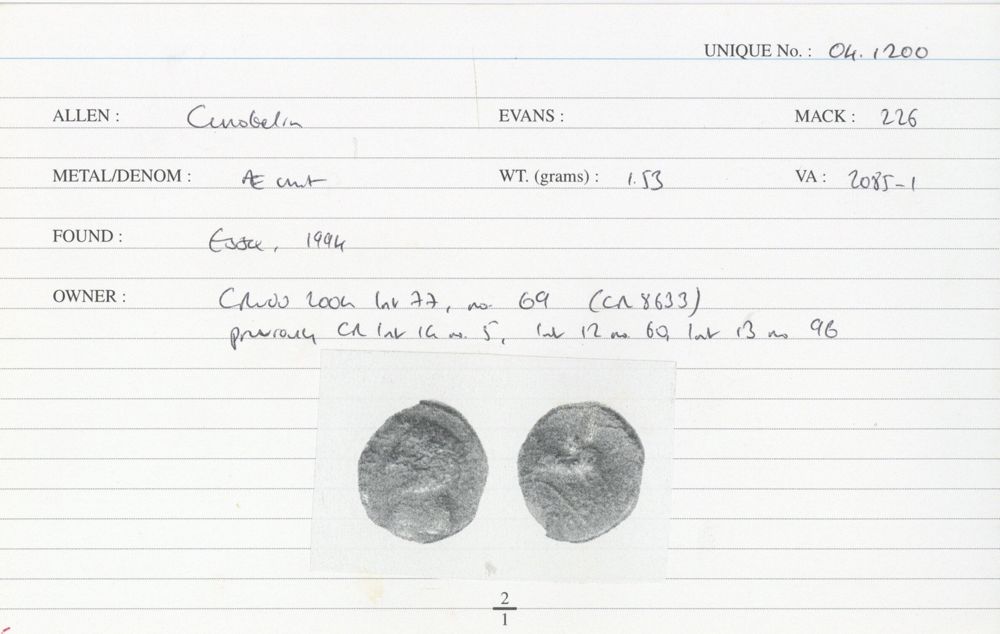 UNIQUE No. : 04.1200
ALLEN : Cunobelin EVANS : MACK : 226
METAL/DENOM : Æ unit WT. (grams) : 1.53 VA : 2085-1
FOUND : Essex, 1994
OWNER : 2004 list 77, no. 69 (CR 8633)
previously CR list no. 5, list 12 no. 60, list 13 no 96
2
1